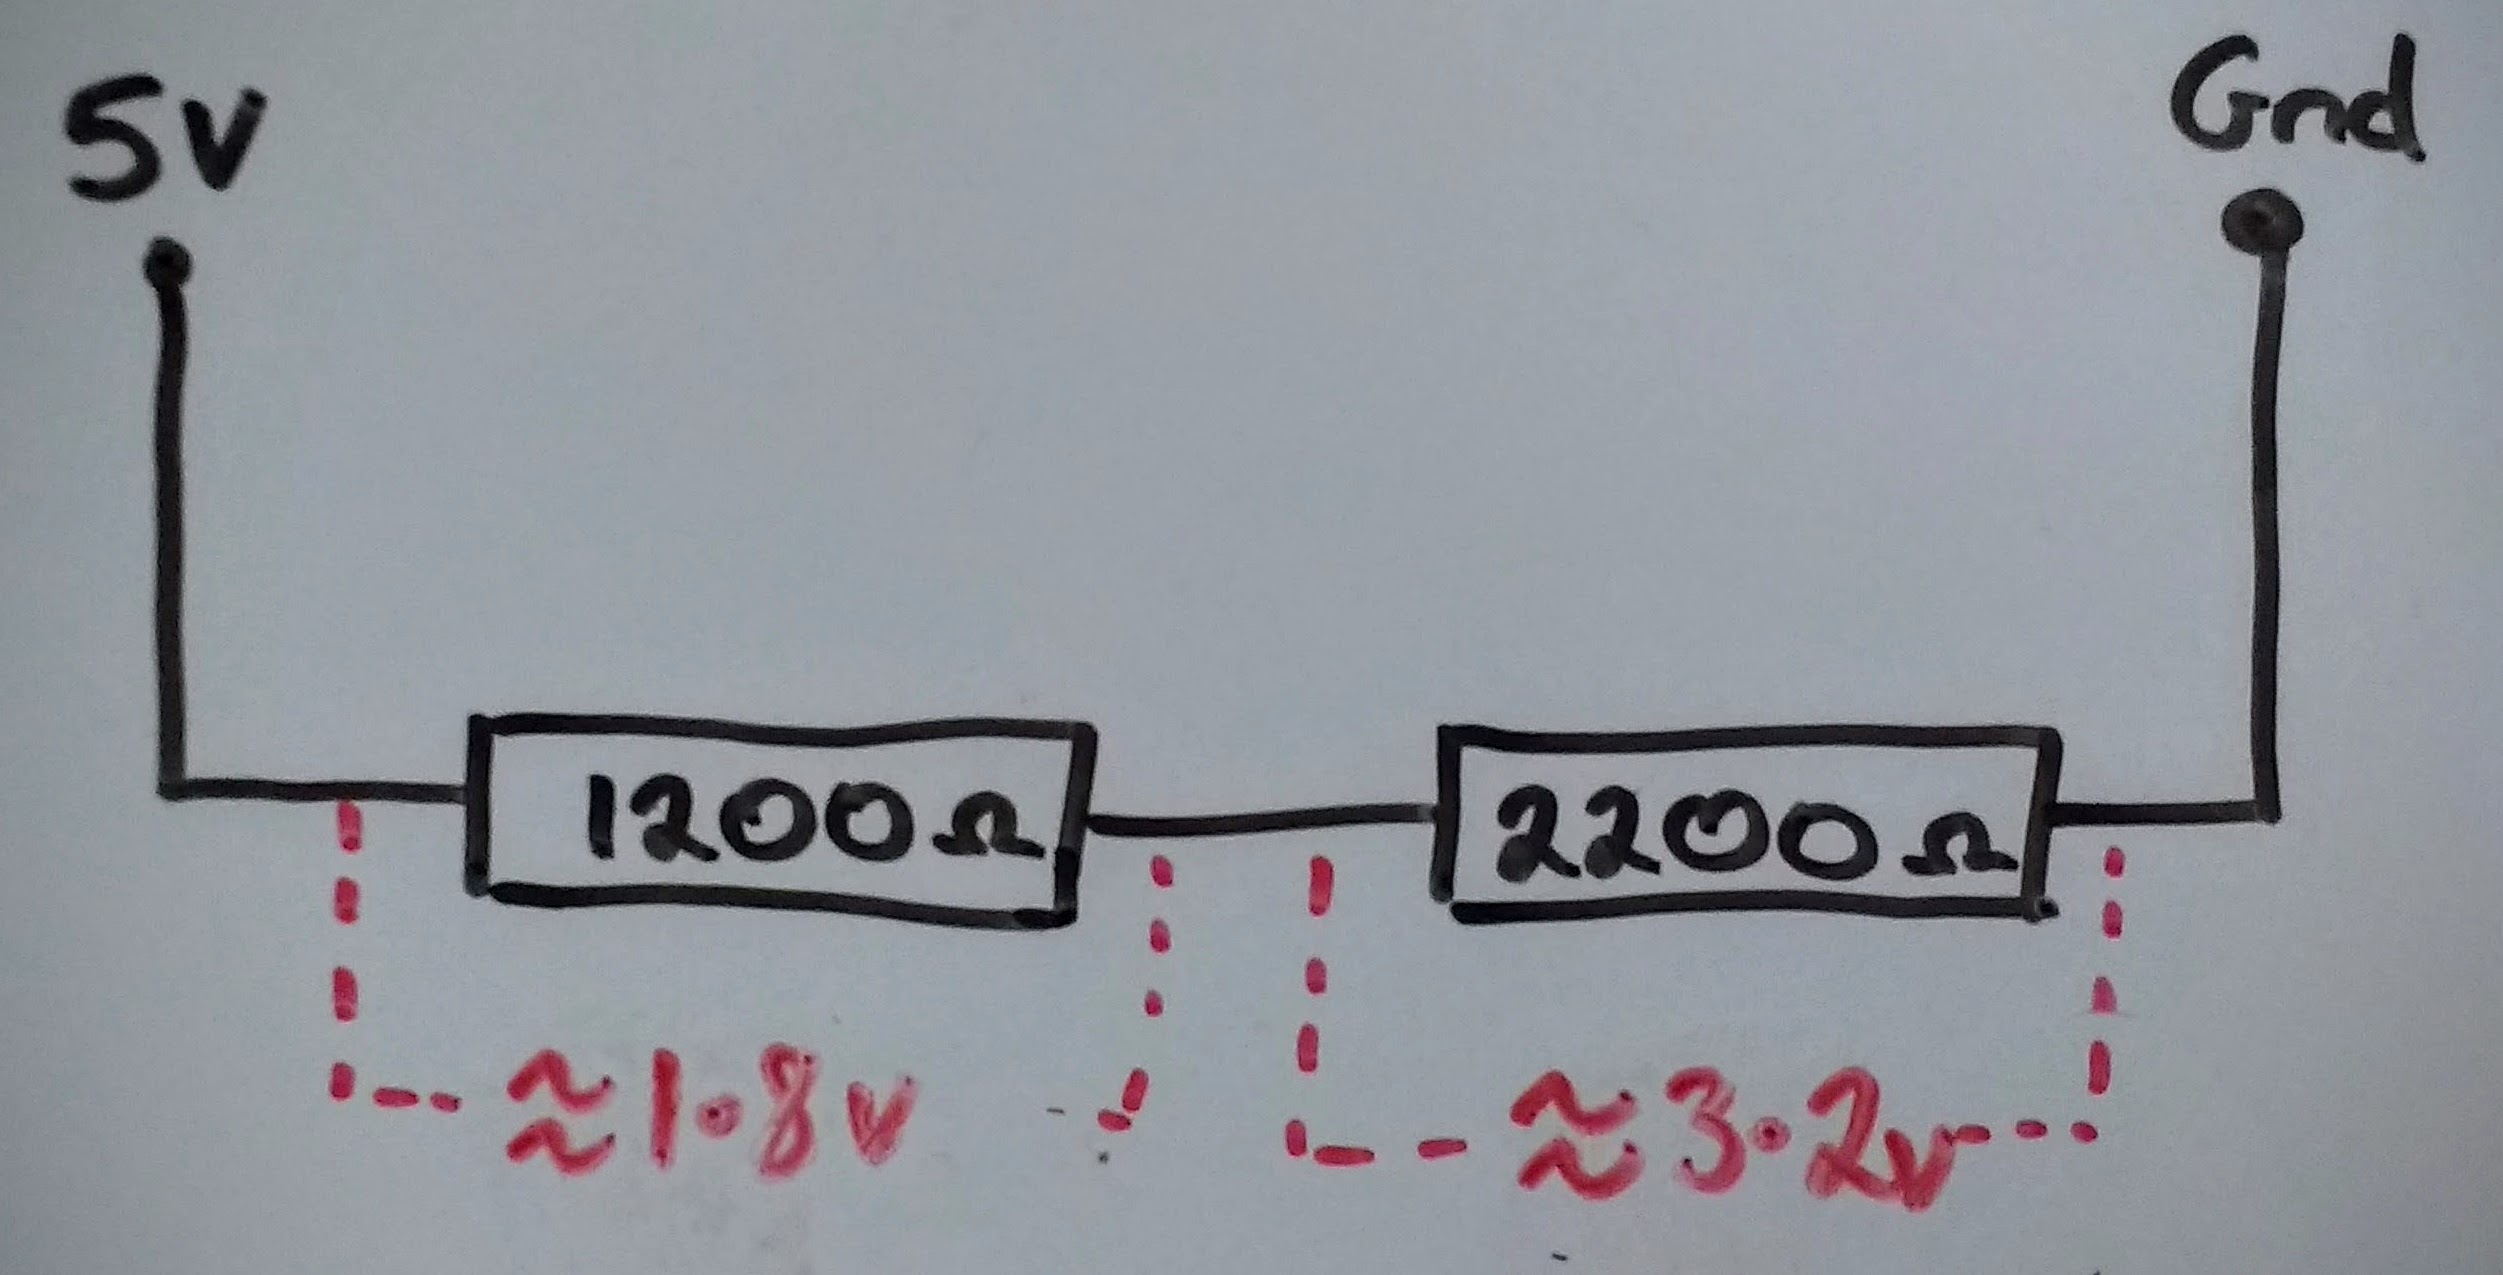 5v
Gnd
1200Ω
2200Ω
≈1.8v
≈3.2v